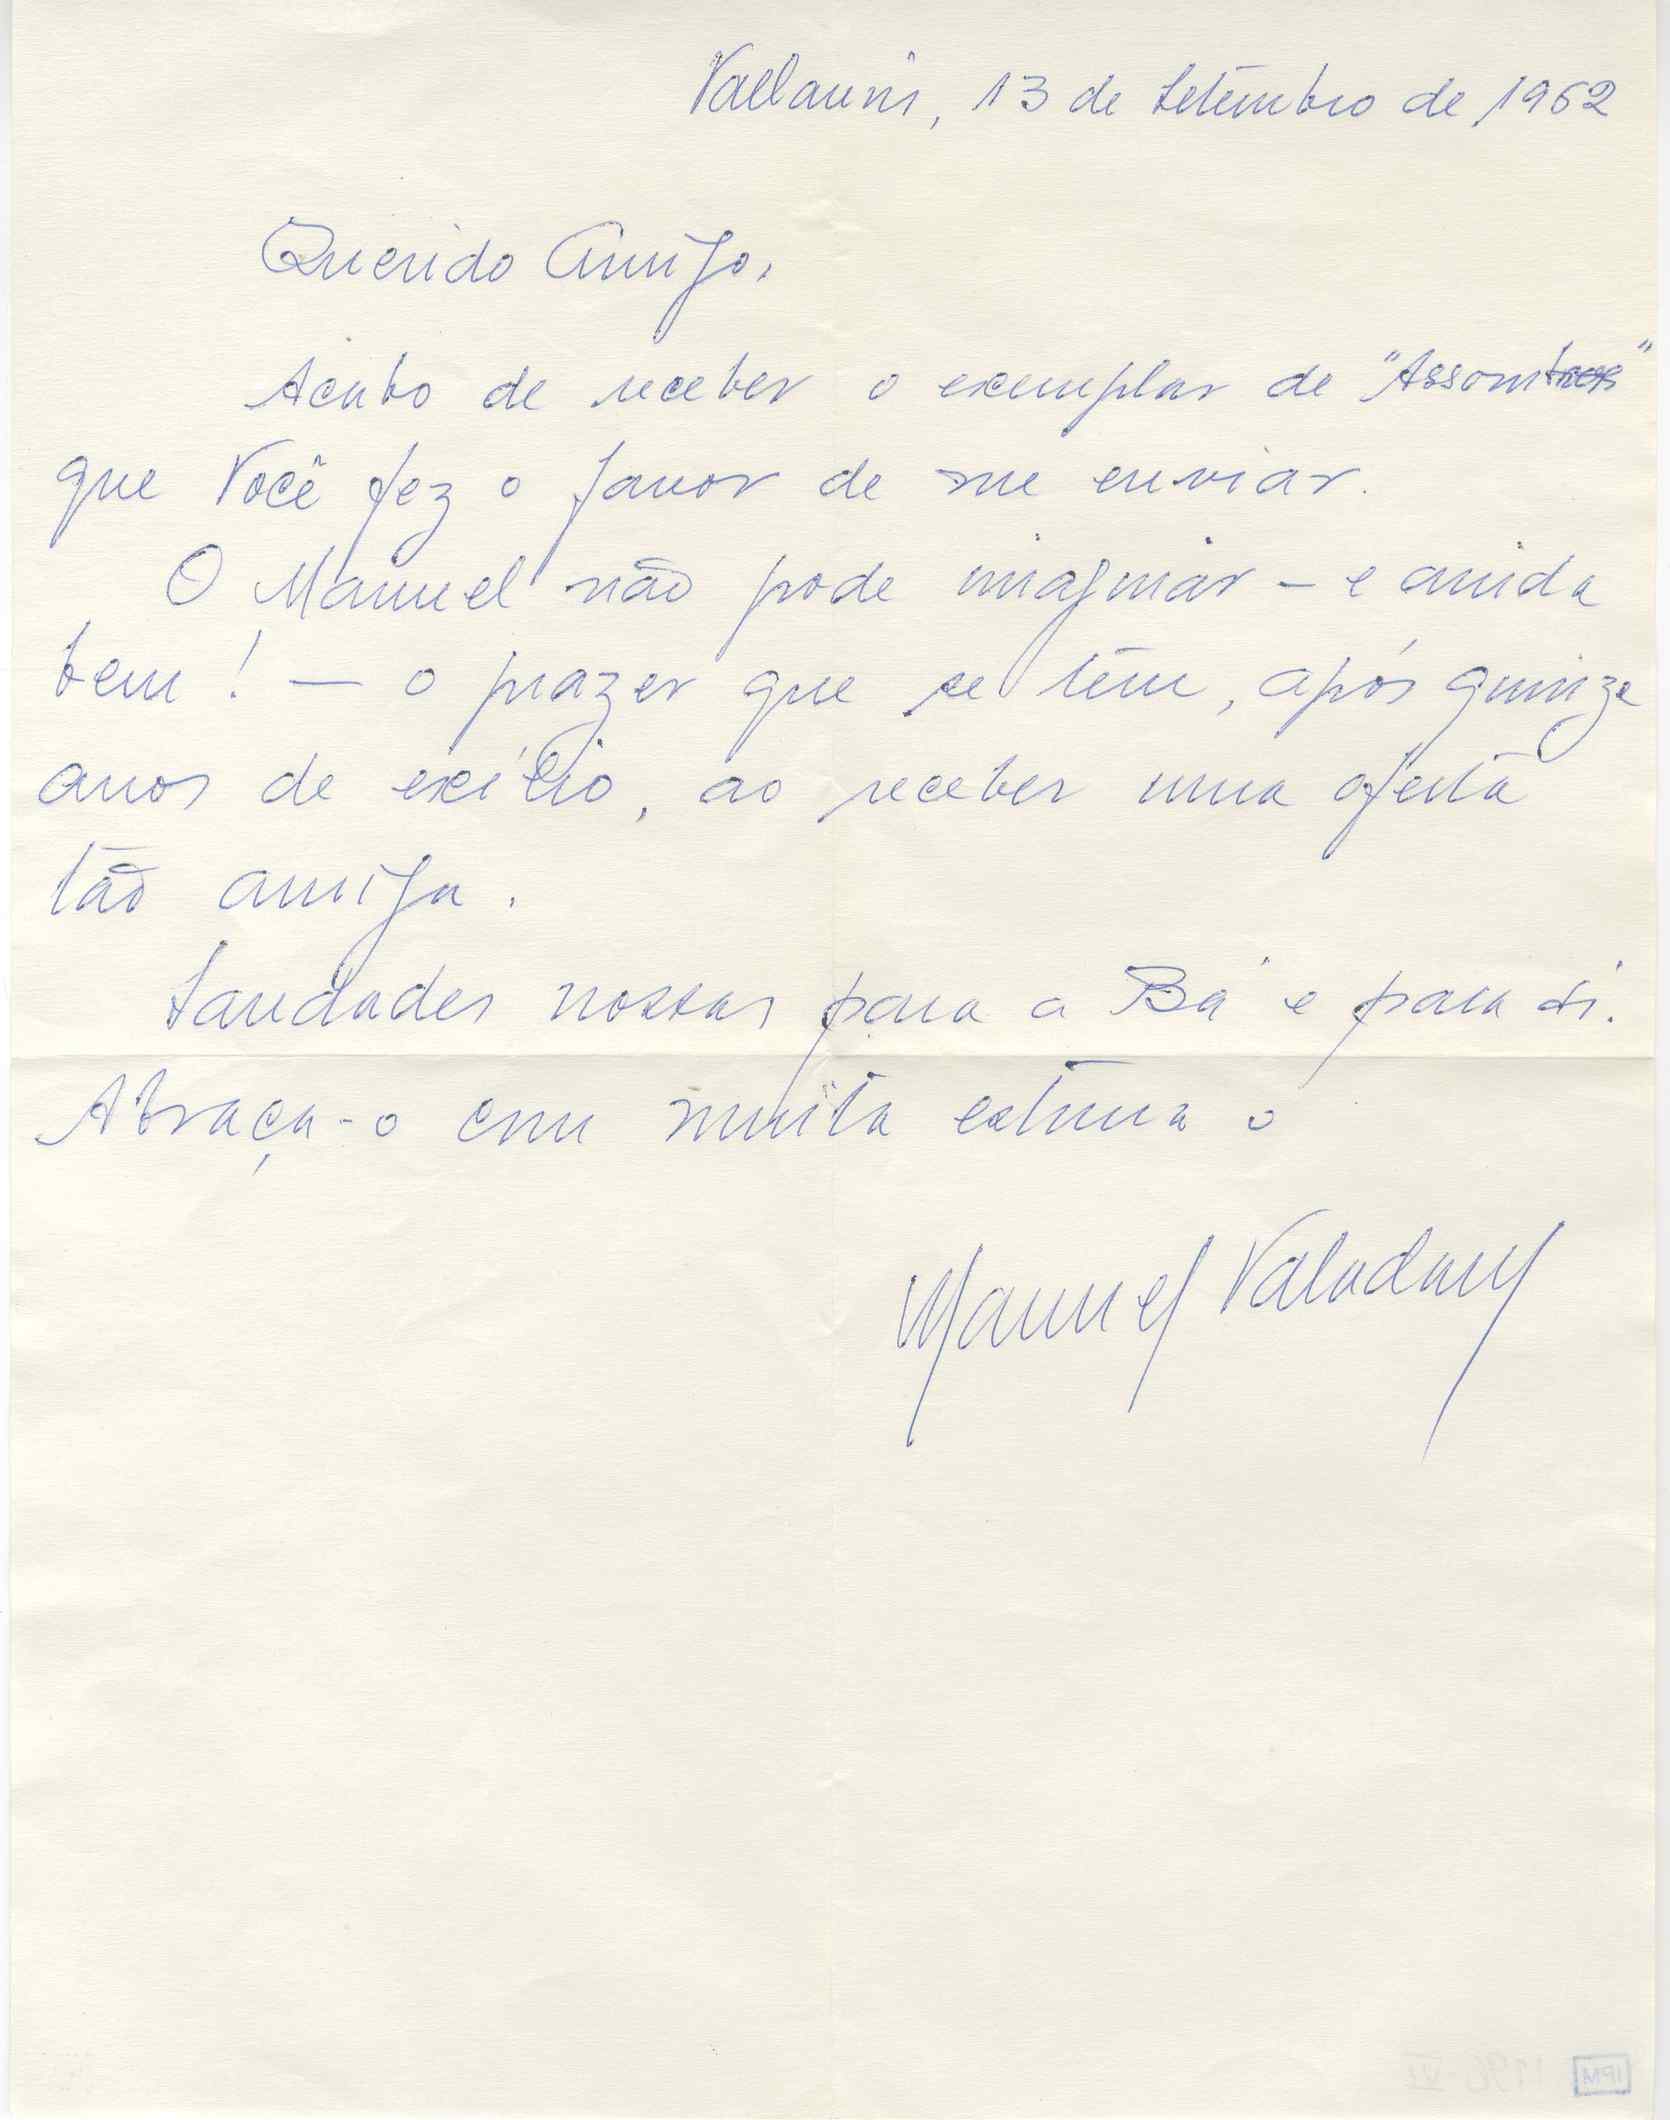 Vallauris, 13 de Setembro de 1962
Querido Amigo,
Acabo de receber o exemplar de "Assombros"
que Você fez o favor de me enviar.
O Manuel não pode imaginar – e ainda
bem! – o prazer que se tem, após quinze
anos de exílio, ao receber uma oferta
tão amiga.
Saudades nossas para a Bá e para si.
Abraça-o com muita estima o
Manuel Valadares
IPM